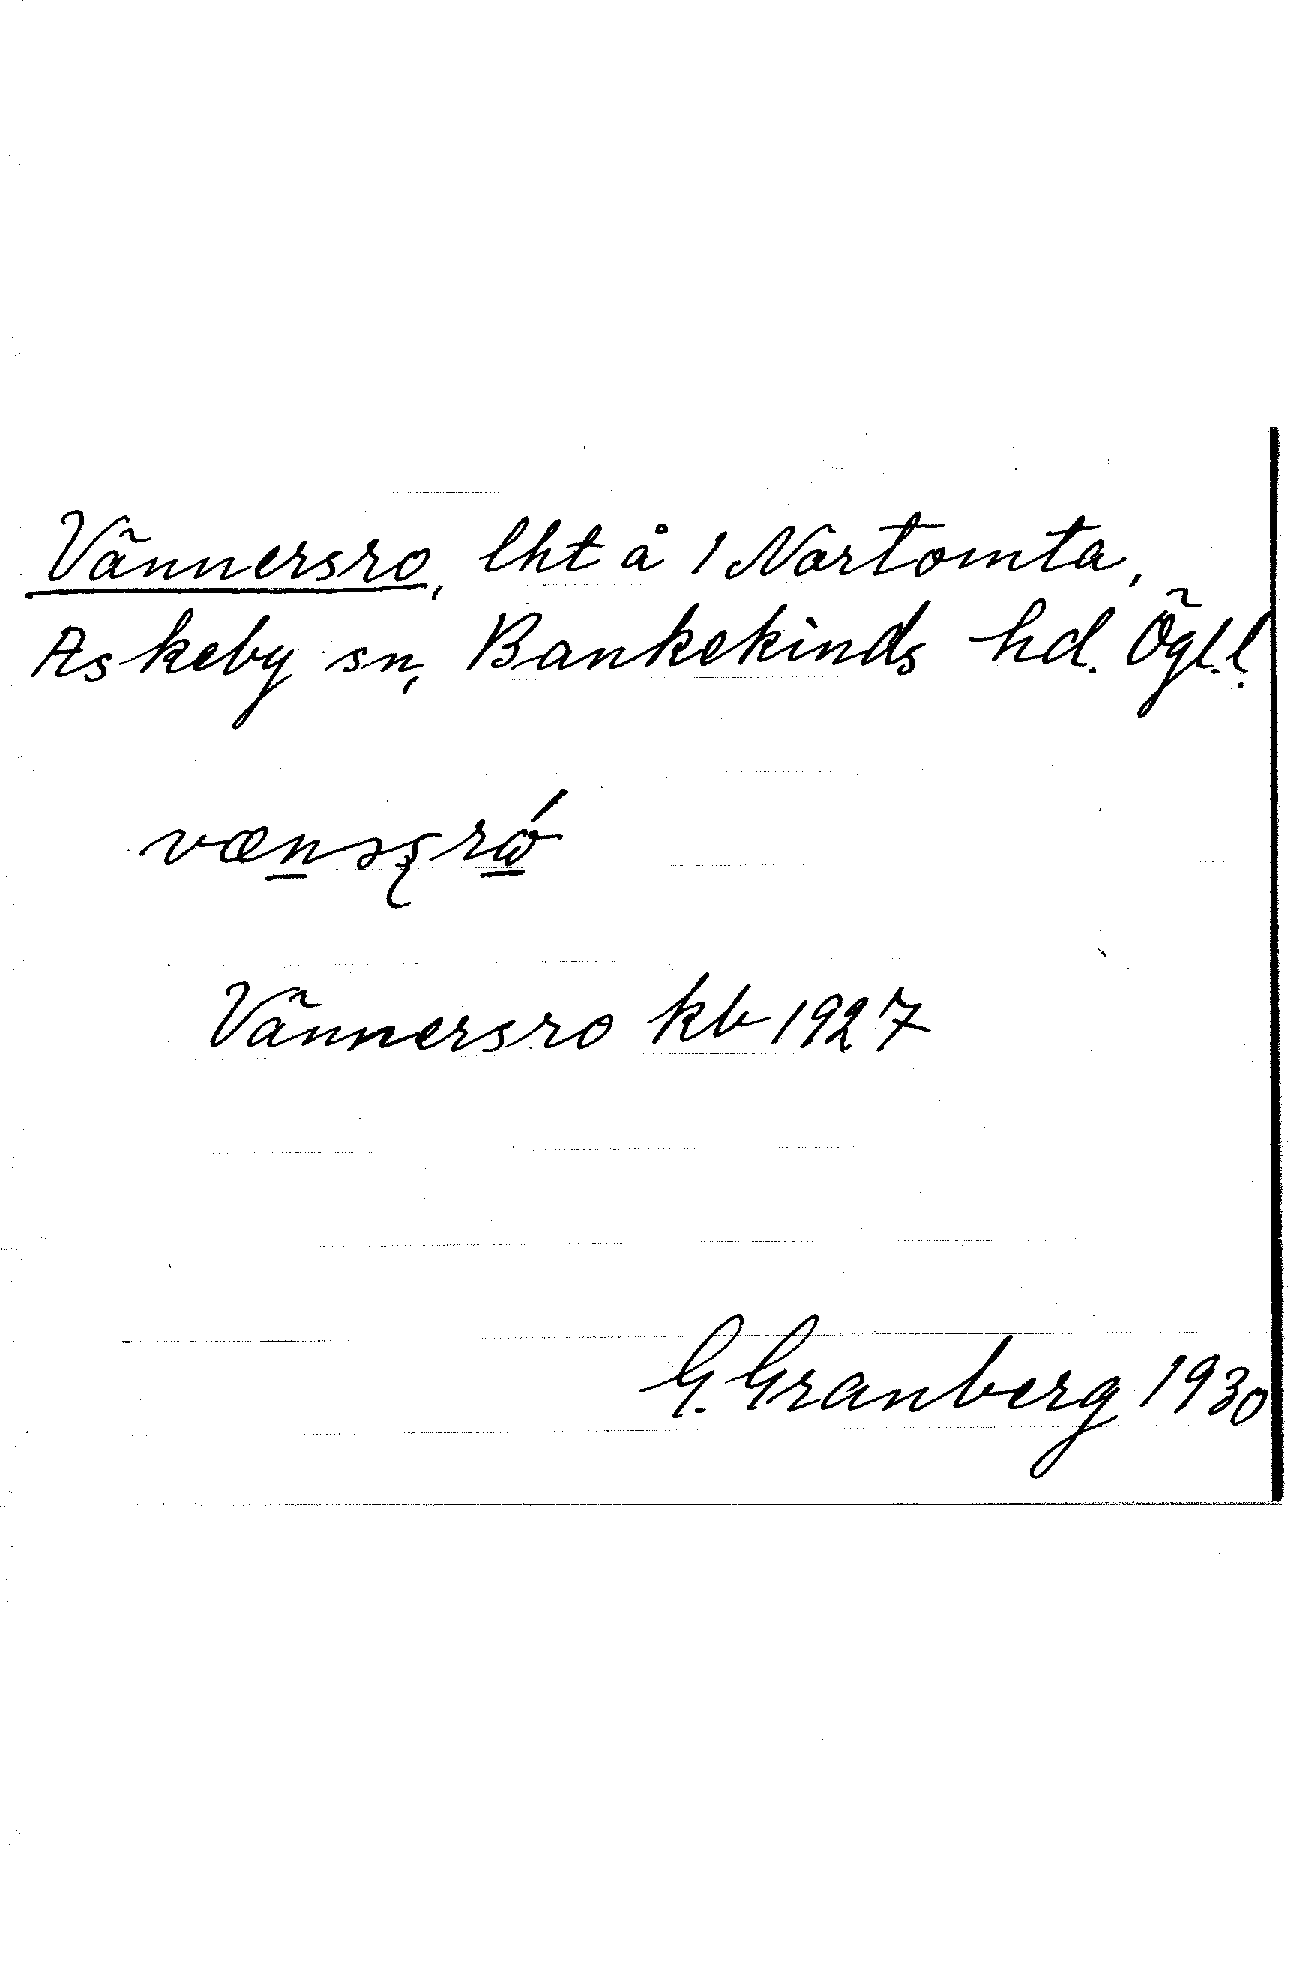 Vännersro, lht å 1 Nartomta,
Askeby sn, Bankekinds hd. Ögl.l.
vænəʂrώ
Vännersro kb 1927
G. Granberg 1930